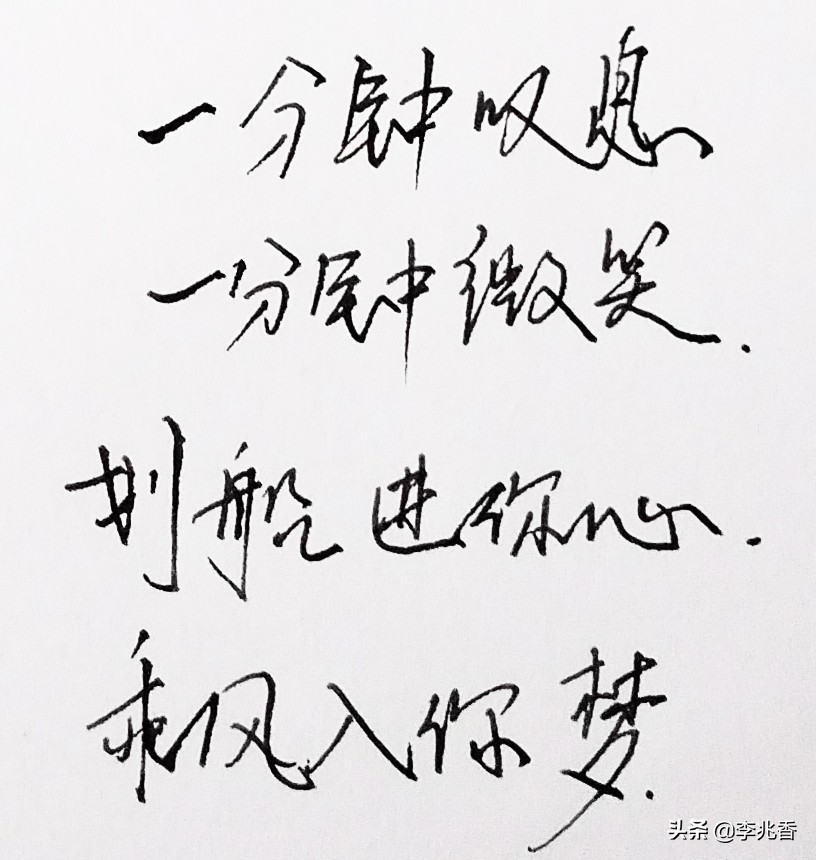 一分钟叹息
一分钟微笑.
划船进你心.
乘风入你梦.
头条 @李兆香